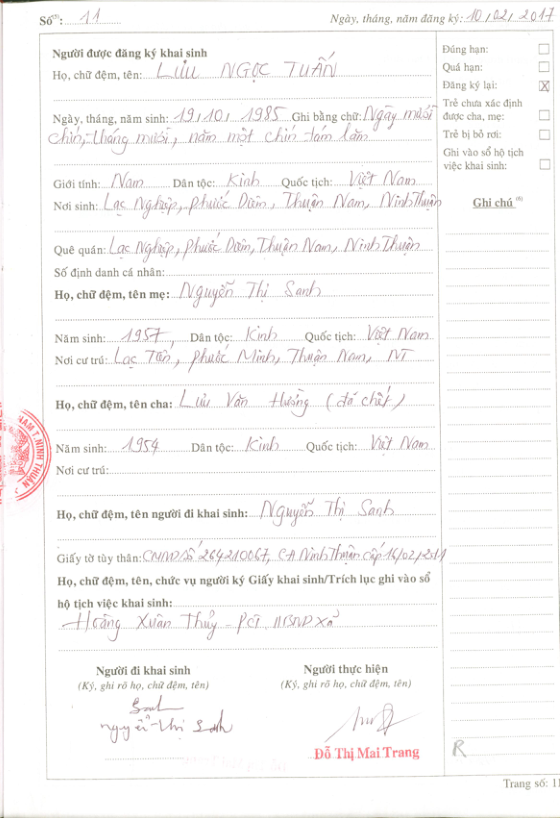 Số⁽⁵⁾: 11 Ngày, tháng, năm đăng ký: 10/02/2017
Người được đăng ký khai sinh
Họ, chữ đệm, tên: LƯU NGỌC TUẤN
Ngày, tháng, năm sinh: 19/10/1985 Ghi bằng chữ: Ngày mười
chín, tháng mười, năm một chín tám lăm
Giới tính: Nam Dân tộc: Kinh Quốc tịch: Việt Nam
Nơi sinh: Lạc Nghiệp, Phước Diêm, Thuận Nam, Ninh Thuận
Quê quán: Lạc Nghiệp, Phước Diêm, Thuận Nam, Ninh Thuận
Số định danh cá nhân:
Họ, chữ đệm, tên mẹ: Nguyễn Thị Sanh
Năm sinh: 1957, Dân tộc: Kinh Quốc tịch: Việt Nam
Nơi cư trú: Lạc Tân, Phước Minh, Thuận Nam, NT
Họ, chữ đệm, tên cha: Lưu Văn Hường (đã chết)
Năm sinh: 1954 Dân tộc: Kinh Quốc tịch: Việt Nam
Nơi cư trú:
Họ, chữ đệm, tên người đi khai sinh: Nguyễn Thị Sanh
Giấy tờ tùy thân: CMND số 264210067, CA Ninh Thuận cấp 16/02/2011
Họ, chữ đệm, tên, chức vụ người ký Giấy khai sinh/Trích lục ghi vào sổ
hộ tịch việc khai sinh:
Hoàng Xuân Thủy - PCT UBND xã
Người đi khai sinh Người thực hiện
(Ký, ghi rõ họ, chữ đệm, tên) (Ký, ghi rõ họ, chữ đệm, tên)
Sanh
Nguyễn Thị Sanh
Đỗ Thị Mai Trang
Đúng hạn:
Quá hạn:
Đăng ký lại: X
Trẻ chưa xác định
được cha, mẹ:
Trẻ bị bỏ rơi:
Ghi vào sổ hộ tịch
việc khai sinh:
Ghi chú ⁽⁶⁾
R
Trang số: 11
NAM T. NINH THUẬN